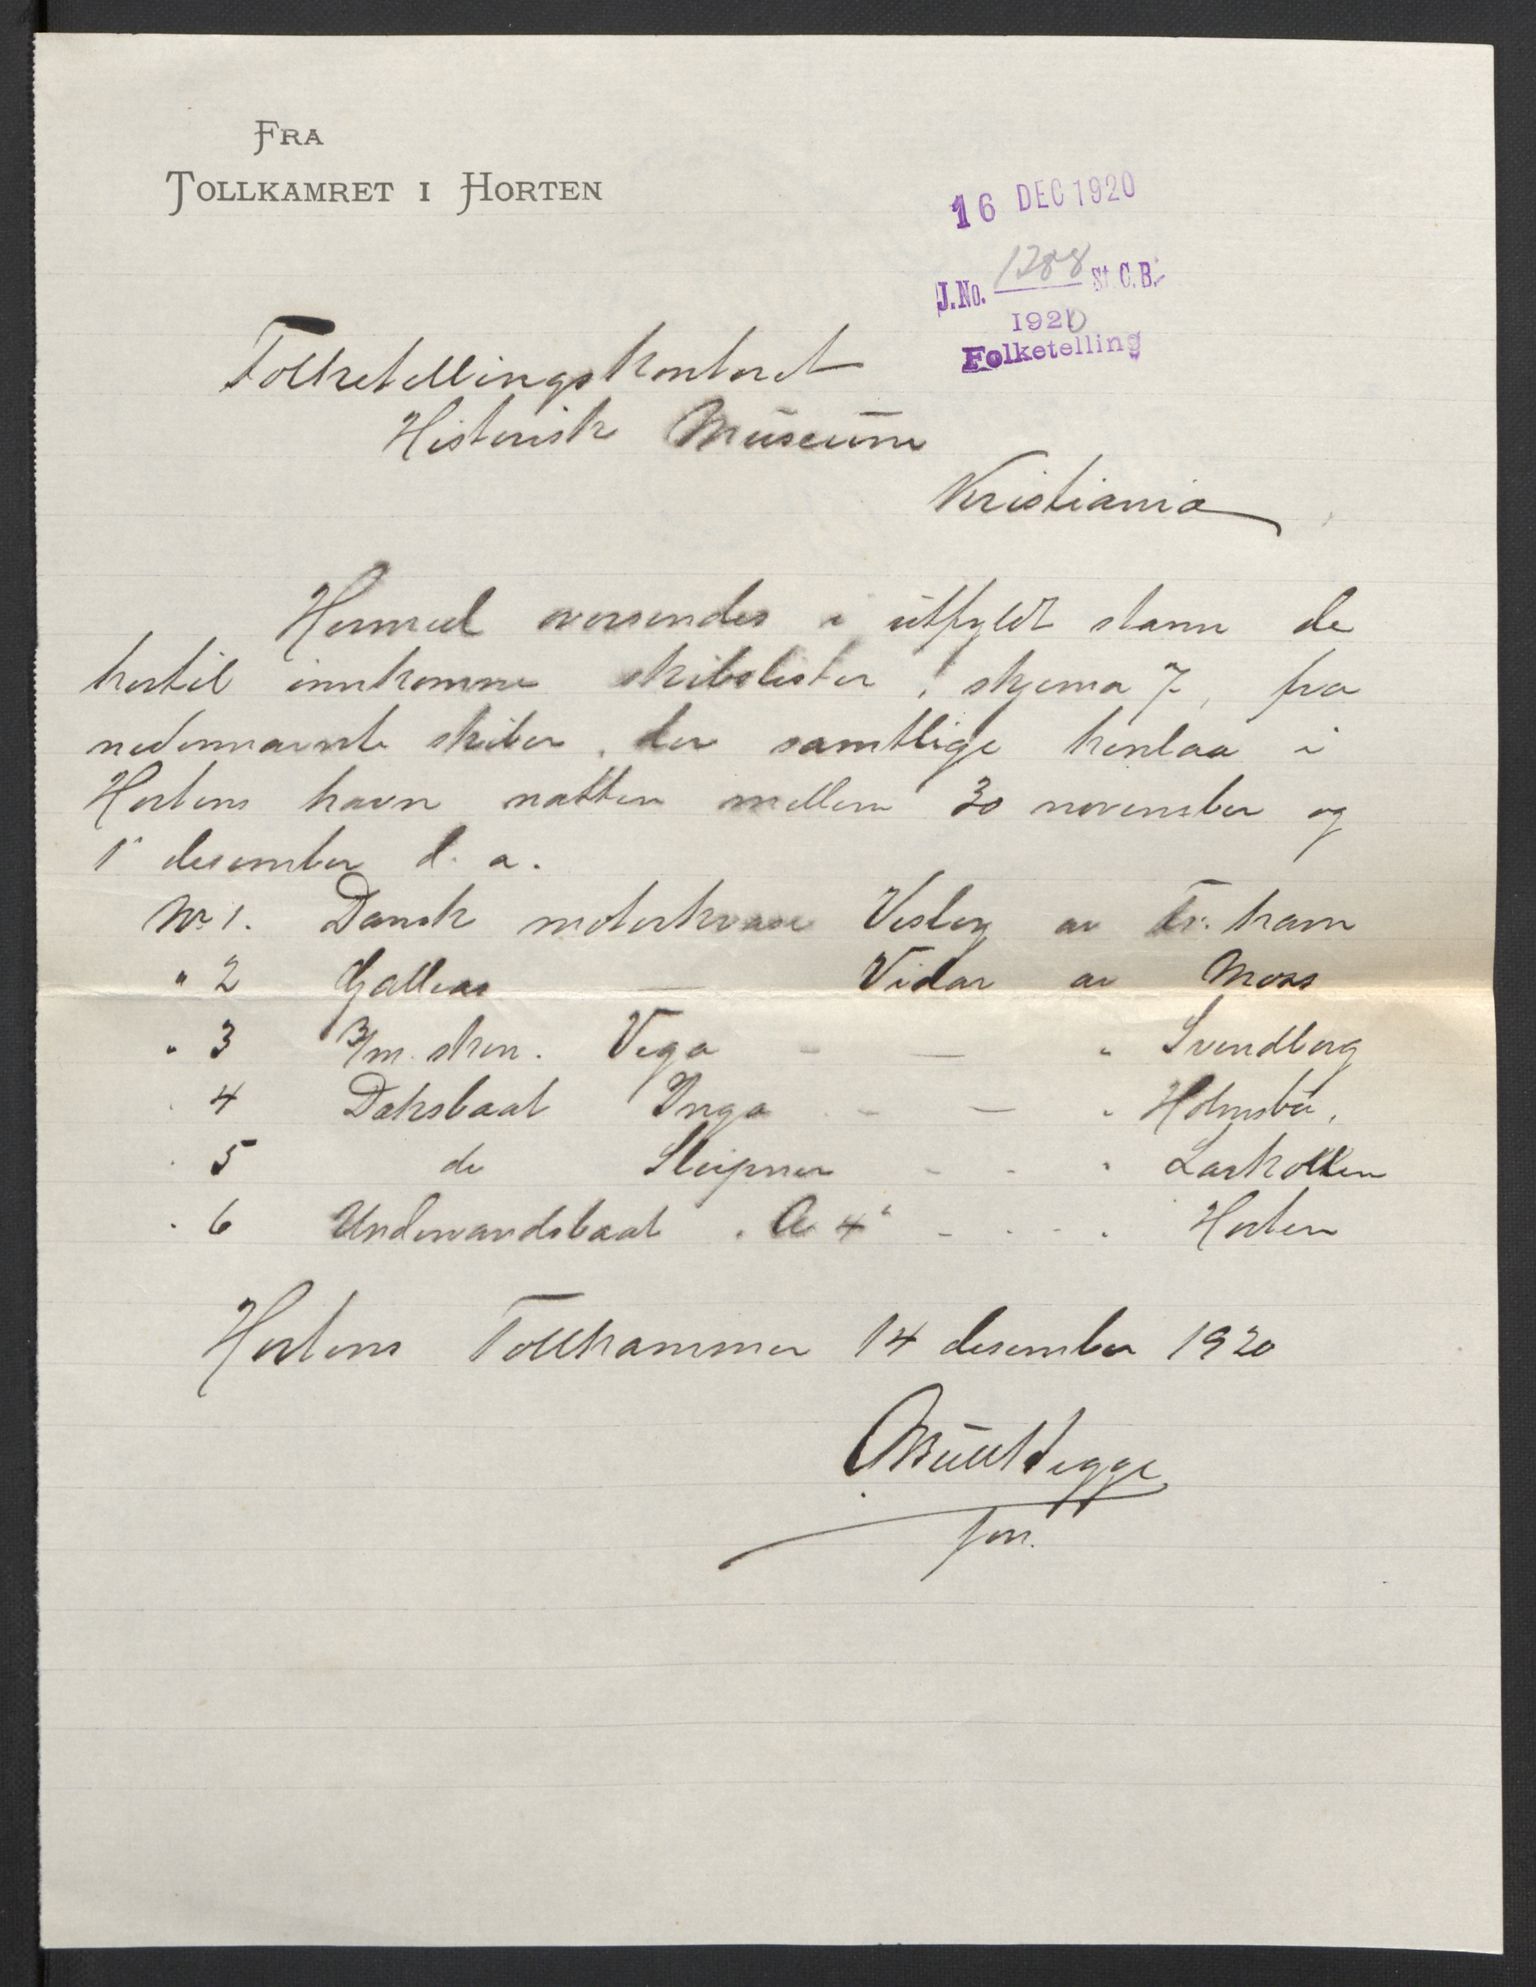 FRA
TOLLKAMRET I HORTEN
16 DEC 1920
J.No. 1288 St. C. B.
1920
Folketelling
Folketellingskontoret
Historisk Museum
Kristiania
Hermed oversendes i utfyldt stann de
hertil innkomne skibslister, skjema 7, fra
nedennævnte skiber, der samtlige henlaa i
Hortens havn natten mellem 30 november og
1 desember d. a.
Nr 1. Dansk motorkvase Vesborg av Fr. havn
" 2 Galleas — Vidar av Moss
" 3 3/m. skon. Vega - — " Svendborg
" 4 Daksbaat Inga - — " Holmsbu.
" 5 do Sleipner - - " Larkollen
" 6 Undervandsbaat "A 4" - - - " Horten
Hortens Tollkammer 14 desember 1920
fon.